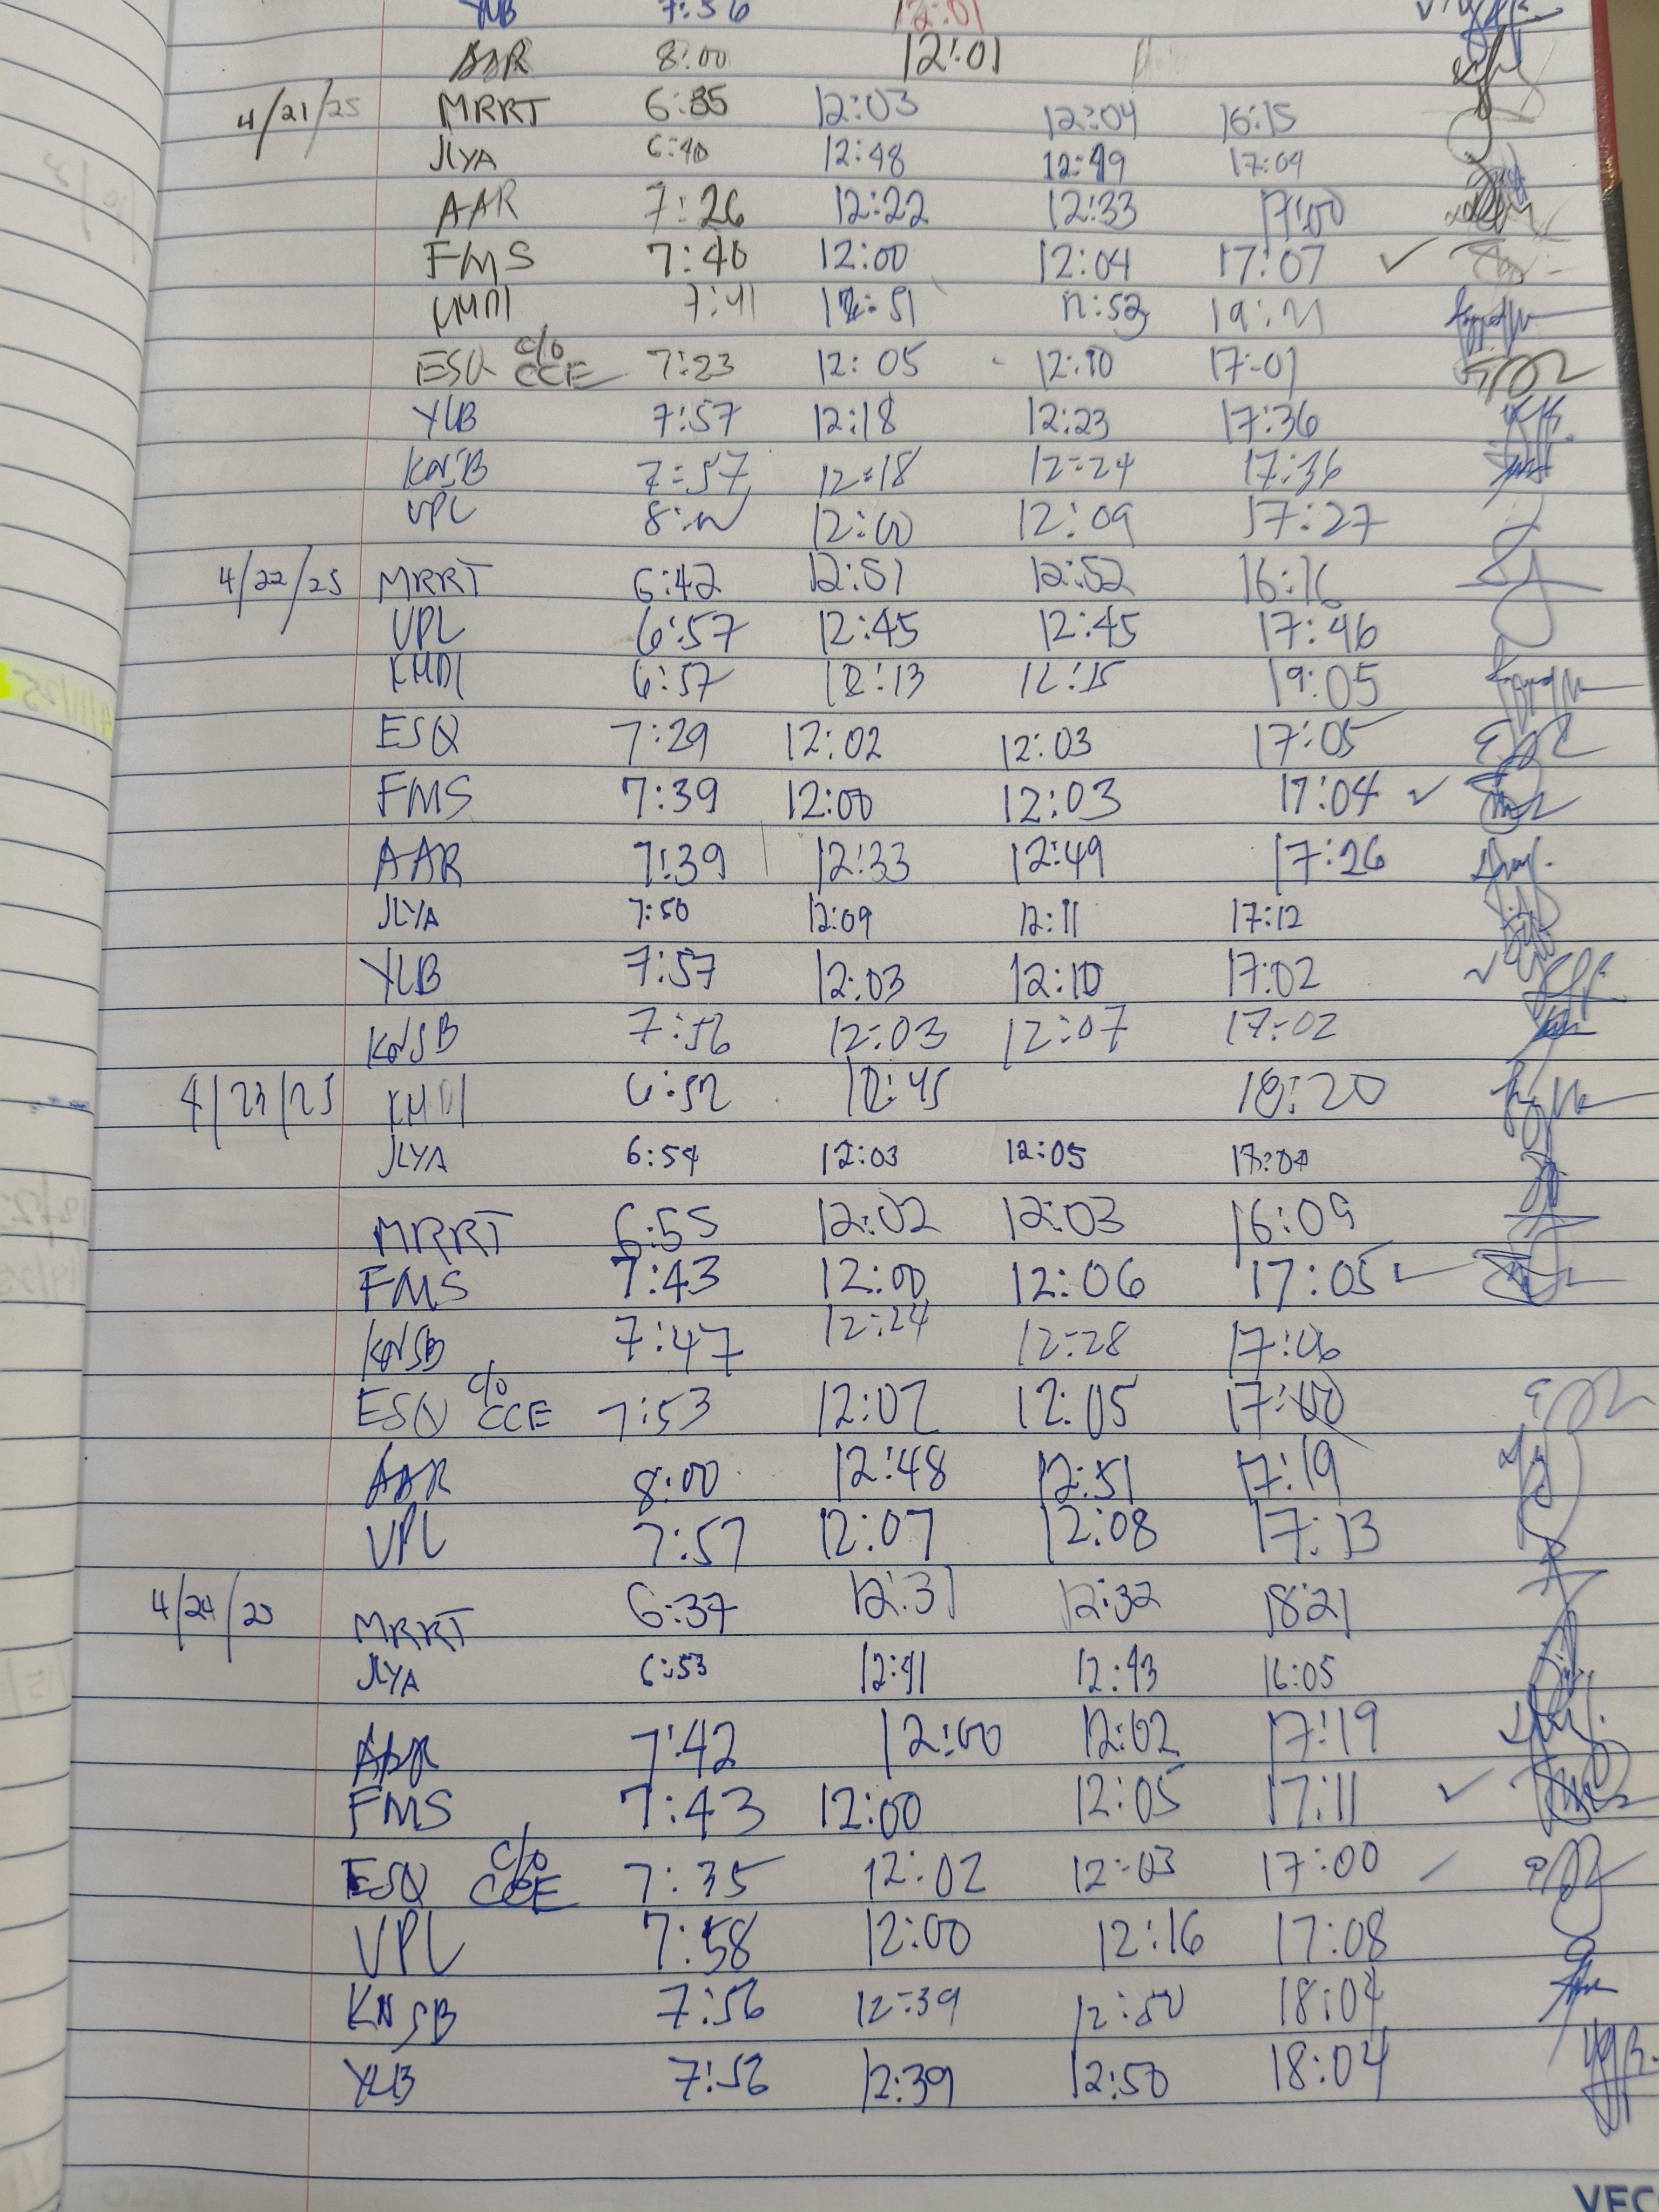 YLB 7:56 12:01
AAR 8:00 12:01
4/21/25 MRRT 6:35 12:03 12:04 16:15
JLYA 6:40 12:48 12:49 17:09
AAR 7:26 12:22 12:33 17:00
FMS 7:40 12:00 12:04 17:07 ✓
KMDI 7:41 12:51 12:52
ESQ c/o CCE 7:23 12:05 12:10 17:01
YLB 7:57 12:18 12:23 17:36
KNSB 7:57 12:18 12:24 17:36
VPL 8:00 12:00 12:09 17:27
4/22/25 MRRT 6:42 12:51 12:52 16:16
VPL 6:57 12:45 12:45 17:46
KMDI 6:57 12:13 12:15 19:05
ESQ 7:29 12:02 12:03 17:05
FMS 7:39 12:00 12:03 17:04 ✓
AAR 7:39 12:33 12:49 17:26
JLYA 7:50 12:09 12:11 17:12
YLB 7:57 12:03 12:10 17:02 ✓
KNSB 7:56 12:03 12:07 17:02
4/23/25 KMDI 6:52 12:45 18:20
JLYA 6:54 12:03 12:05
MRRT 6:55 12:02 12:03 16:09
FMS 7:43 12:00 12:06 17:05 ✓
KNSB 7:47 12:24 12:28 17:06
ESQ c/o CCE 7:53 12:02 12:05 17:00
AAR 8:00 12:48 12:51 17:19
VPL 7:57 12:07 12:08 17:13
4/24/25 MRRT 6:37 12:31 12:32 18:21
JLYA 6:53 12:41 12:43 16:05
AAR 7:42 12:00 12:02 17:19
FMS 7:43 12:00 12:05 17:11 ✓
ESQ c/o CCE 7:35 12:02 12:03 17:00
VPL 7:58 12:00 12:16 17:08
KNSB 7:56 12:39 12:50 18:04
YLB 7:56 12:39 12:50 18:04